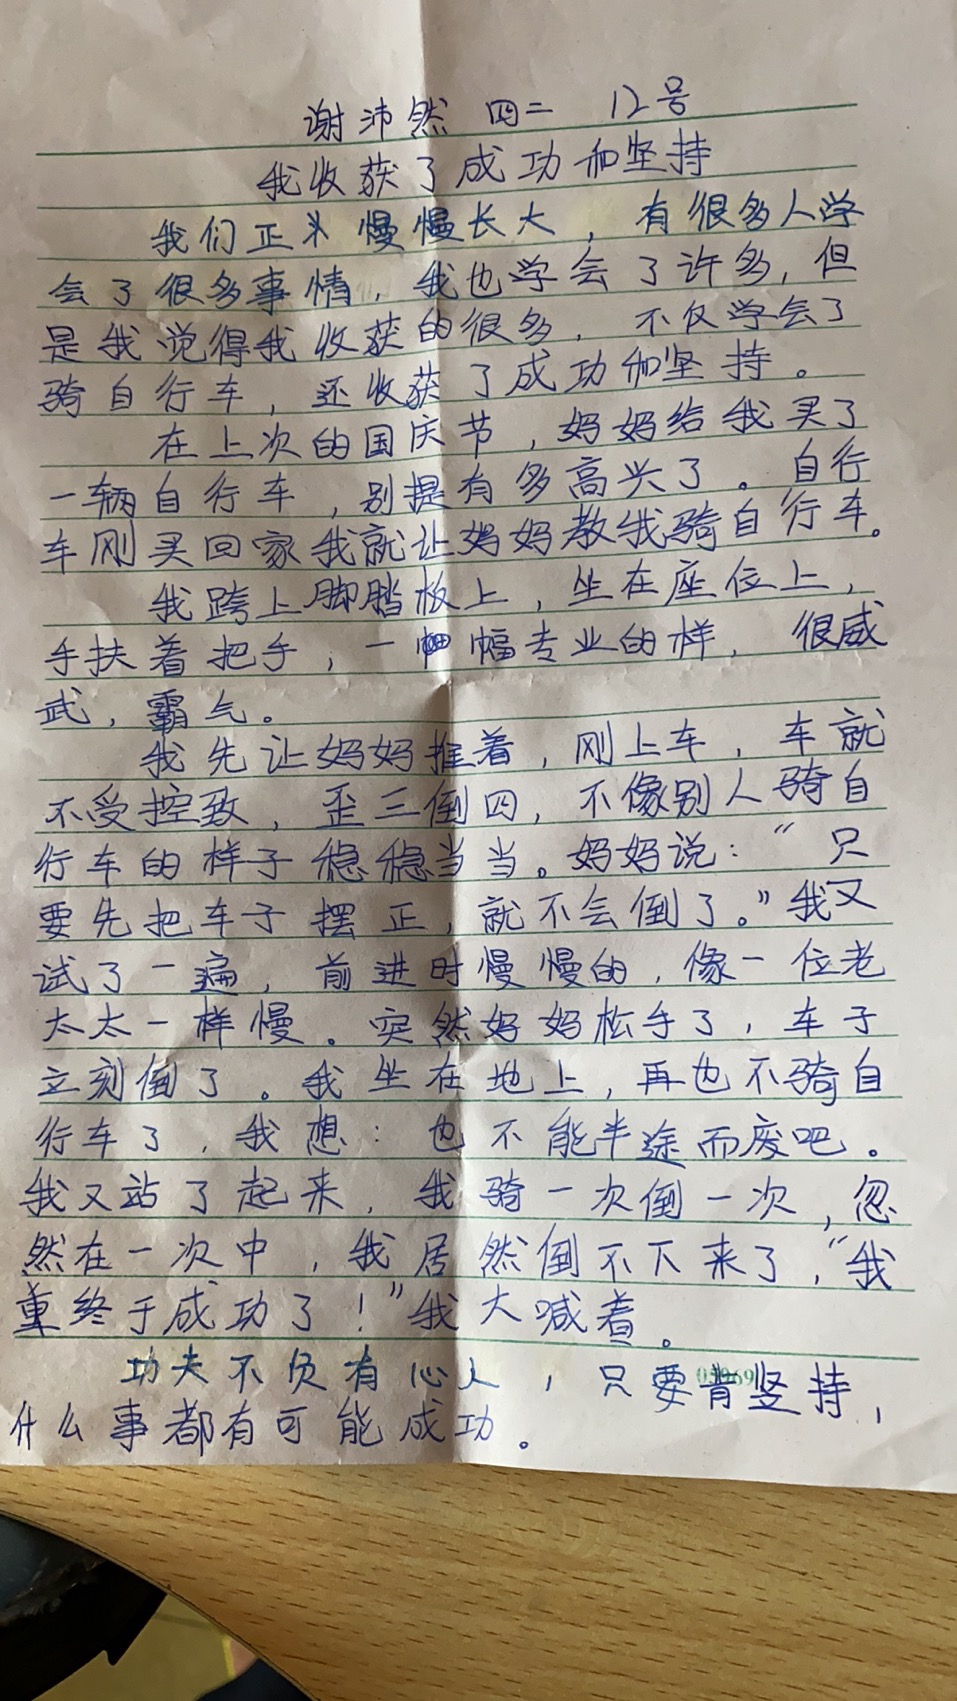 谢沛然 四二 12号
我收获了成功和坚持
我们正 慢慢长大，有很多人学
会了很多事情，我也学会了许多，但
是我觉得我收获的很多，不仅学会了
骑自行车，还收获了成功和坚持。
在上次的国庆节，妈妈给我买了
一辆自行车，别提有多高兴了。自行
车刚买回家我就让妈妈教我骑自行车。
我跨上脚踏板上，坐在座位上，
手扶着把手，一幅专业的样，很威
武，霸气。
我先让妈妈推着，刚上车，车就
不受控致，歪三倒四，不像别人骑自
行车的样子稳稳当当。妈妈说：“只
要先把车子摆正，就不会倒了。”我又
试了一遍，前进时慢慢的，像一位老
太太一样慢。突然妈妈松手了，车子
立刻倒了。我坐在地上，再也不骑自
行车了，我想：也不能半途而废吧。
我又站了起来，我骑一次倒一次，忽
然在一次中，我居然倒不下来了，“我
终于成功了！”我大喊着。
功夫不负有心人，只要肯坚持，
什么事都有可能成功。